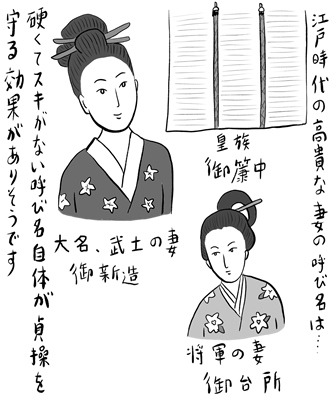 江戸時代の高貴な妻の呼び名は…
皇族
御簾中
大名、武士の妻
御新造
将軍の妻
御台所
硬くてスキがない呼び名自体が貞操を
守る効果がありそうです